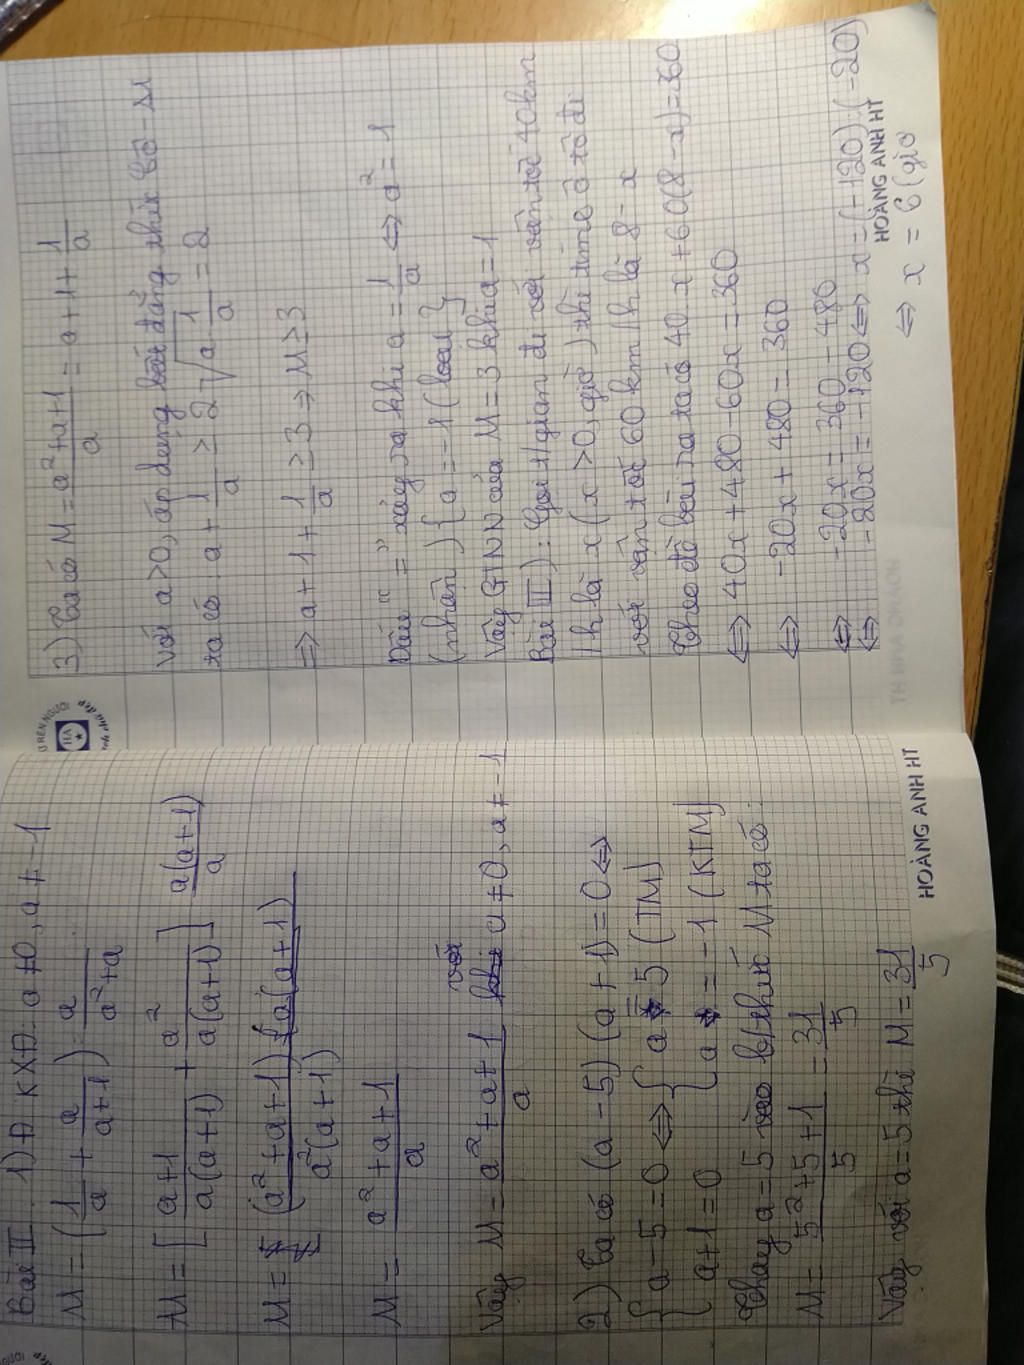 Bài II. 1) Đ KXĐ: a ≠ 0, a ≠ -1
M = (1/a + a/(a+1)) : a/(a²+a)
M = [(a+1)/(a(a+1)) + a²/(a(a+1))] · a(a+1)/a
M = (a²+a+1)·(a(a+1))/(a²(a+1))
M = (a²+a+1)/a
với
Vậy M = (a²+a+1)/a a ≠ 0, a ≠ -1
2) Ta có (a-5)(a+1) = 0 ⇔
{a-5=0 ⇔ {a = 5 (TM)
{a+1=0 {a = -1 (KTM)
Thay a=5 vào b/thức M ta có:
M = (5²+5+1)/5 = 31/5
Vậy với a=5 thì M = 31/5
HOÀNG ANH HT
3) Ta có M = (a²+a+1)/a = a+1+1/a
Với a>0, áp dụng bất đẳng thức Cô-si
ta có: a + 1/a ≥ 2√(a·1/a) = 2
⇒ a+1+1/a ≥ 3 ⇒ M ≥ 3
Dấu "=" xảy ra khi a = 1/a ⇔ a² = 1
(nhận) {a = -1 (loại)
Vậy GTNN của M = 3 khi a = 1
Bài III): Gọi t/gian đi với vận tốc 40km
/h là x (x > 0, giờ) thì time ô tô đi
với vận tốc 60 km/h là 8-x
Theo đề bài ra ta có 40.x+60(8-x)=360
⇔ 40x+480-60x=360
⇔ -20x+480=360
⇔ -20x=360-480
⇔ -20x=-120 ⇔ x=(-120):(-20)
HOÀNG ANH HT
⇔ x = 6 (giờ